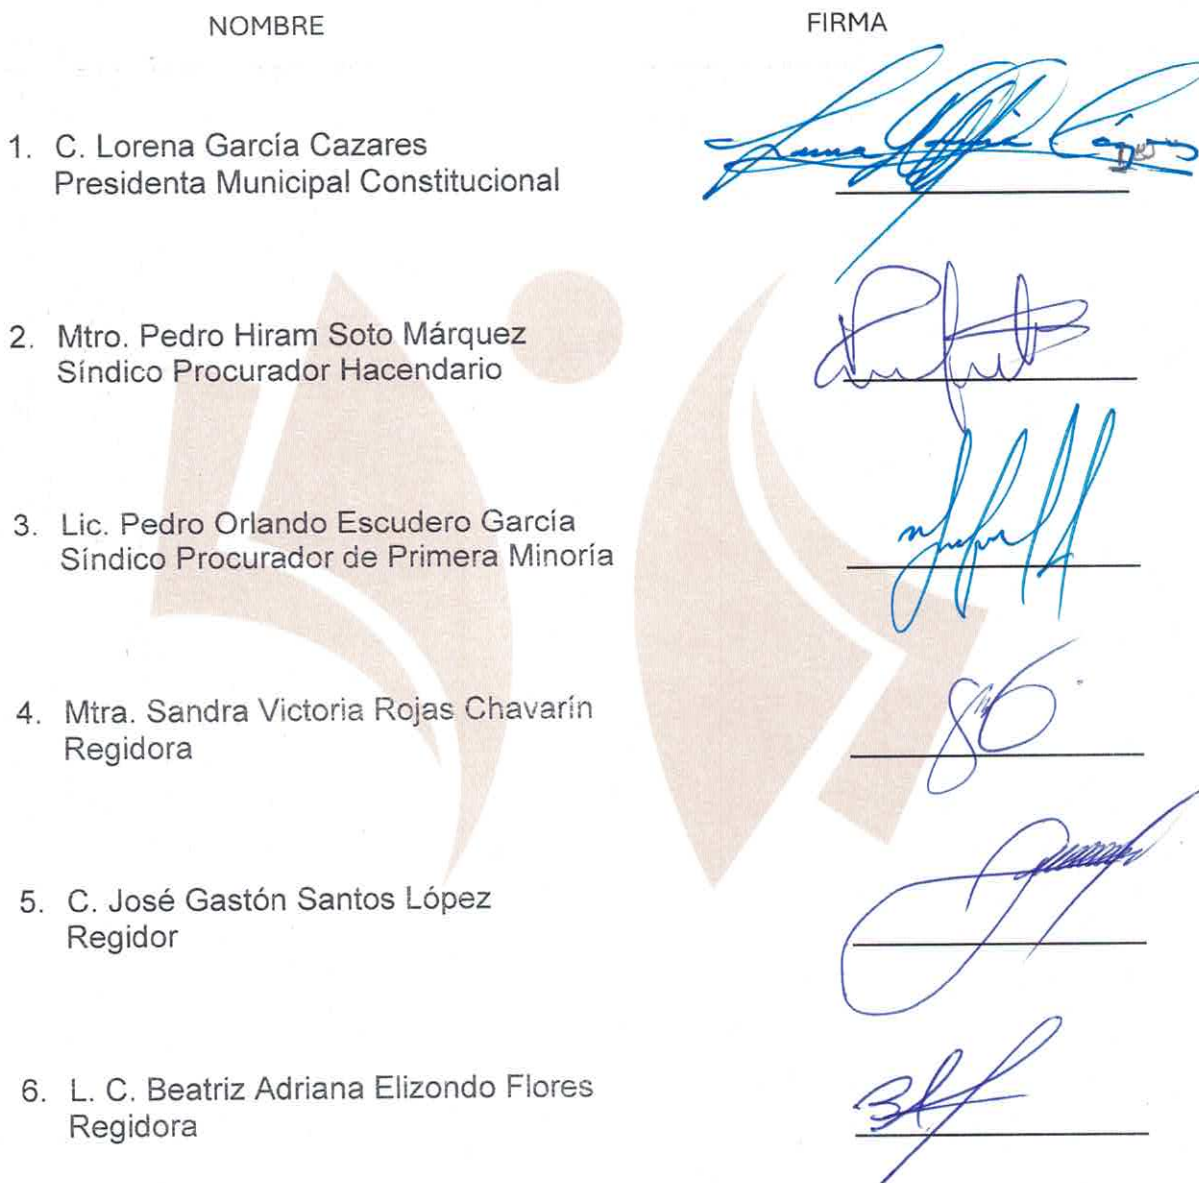 NOMBRE FIRMA
1. C. Lorena García Cazares
Presidenta Municipal Constitucional
2. Mtro. Pedro Hiram Soto Márquez
Síndico Procurador Hacendario
3. Lic. Pedro Orlando Escudero García
Síndico Procurador de Primera Minoría
4. Mtra. Sandra Victoria Rojas Chavarín
Regidora
5. C. José Gastón Santos López
Regidor
6. L. C. Beatriz Adriana Elizondo Flores
Regidora